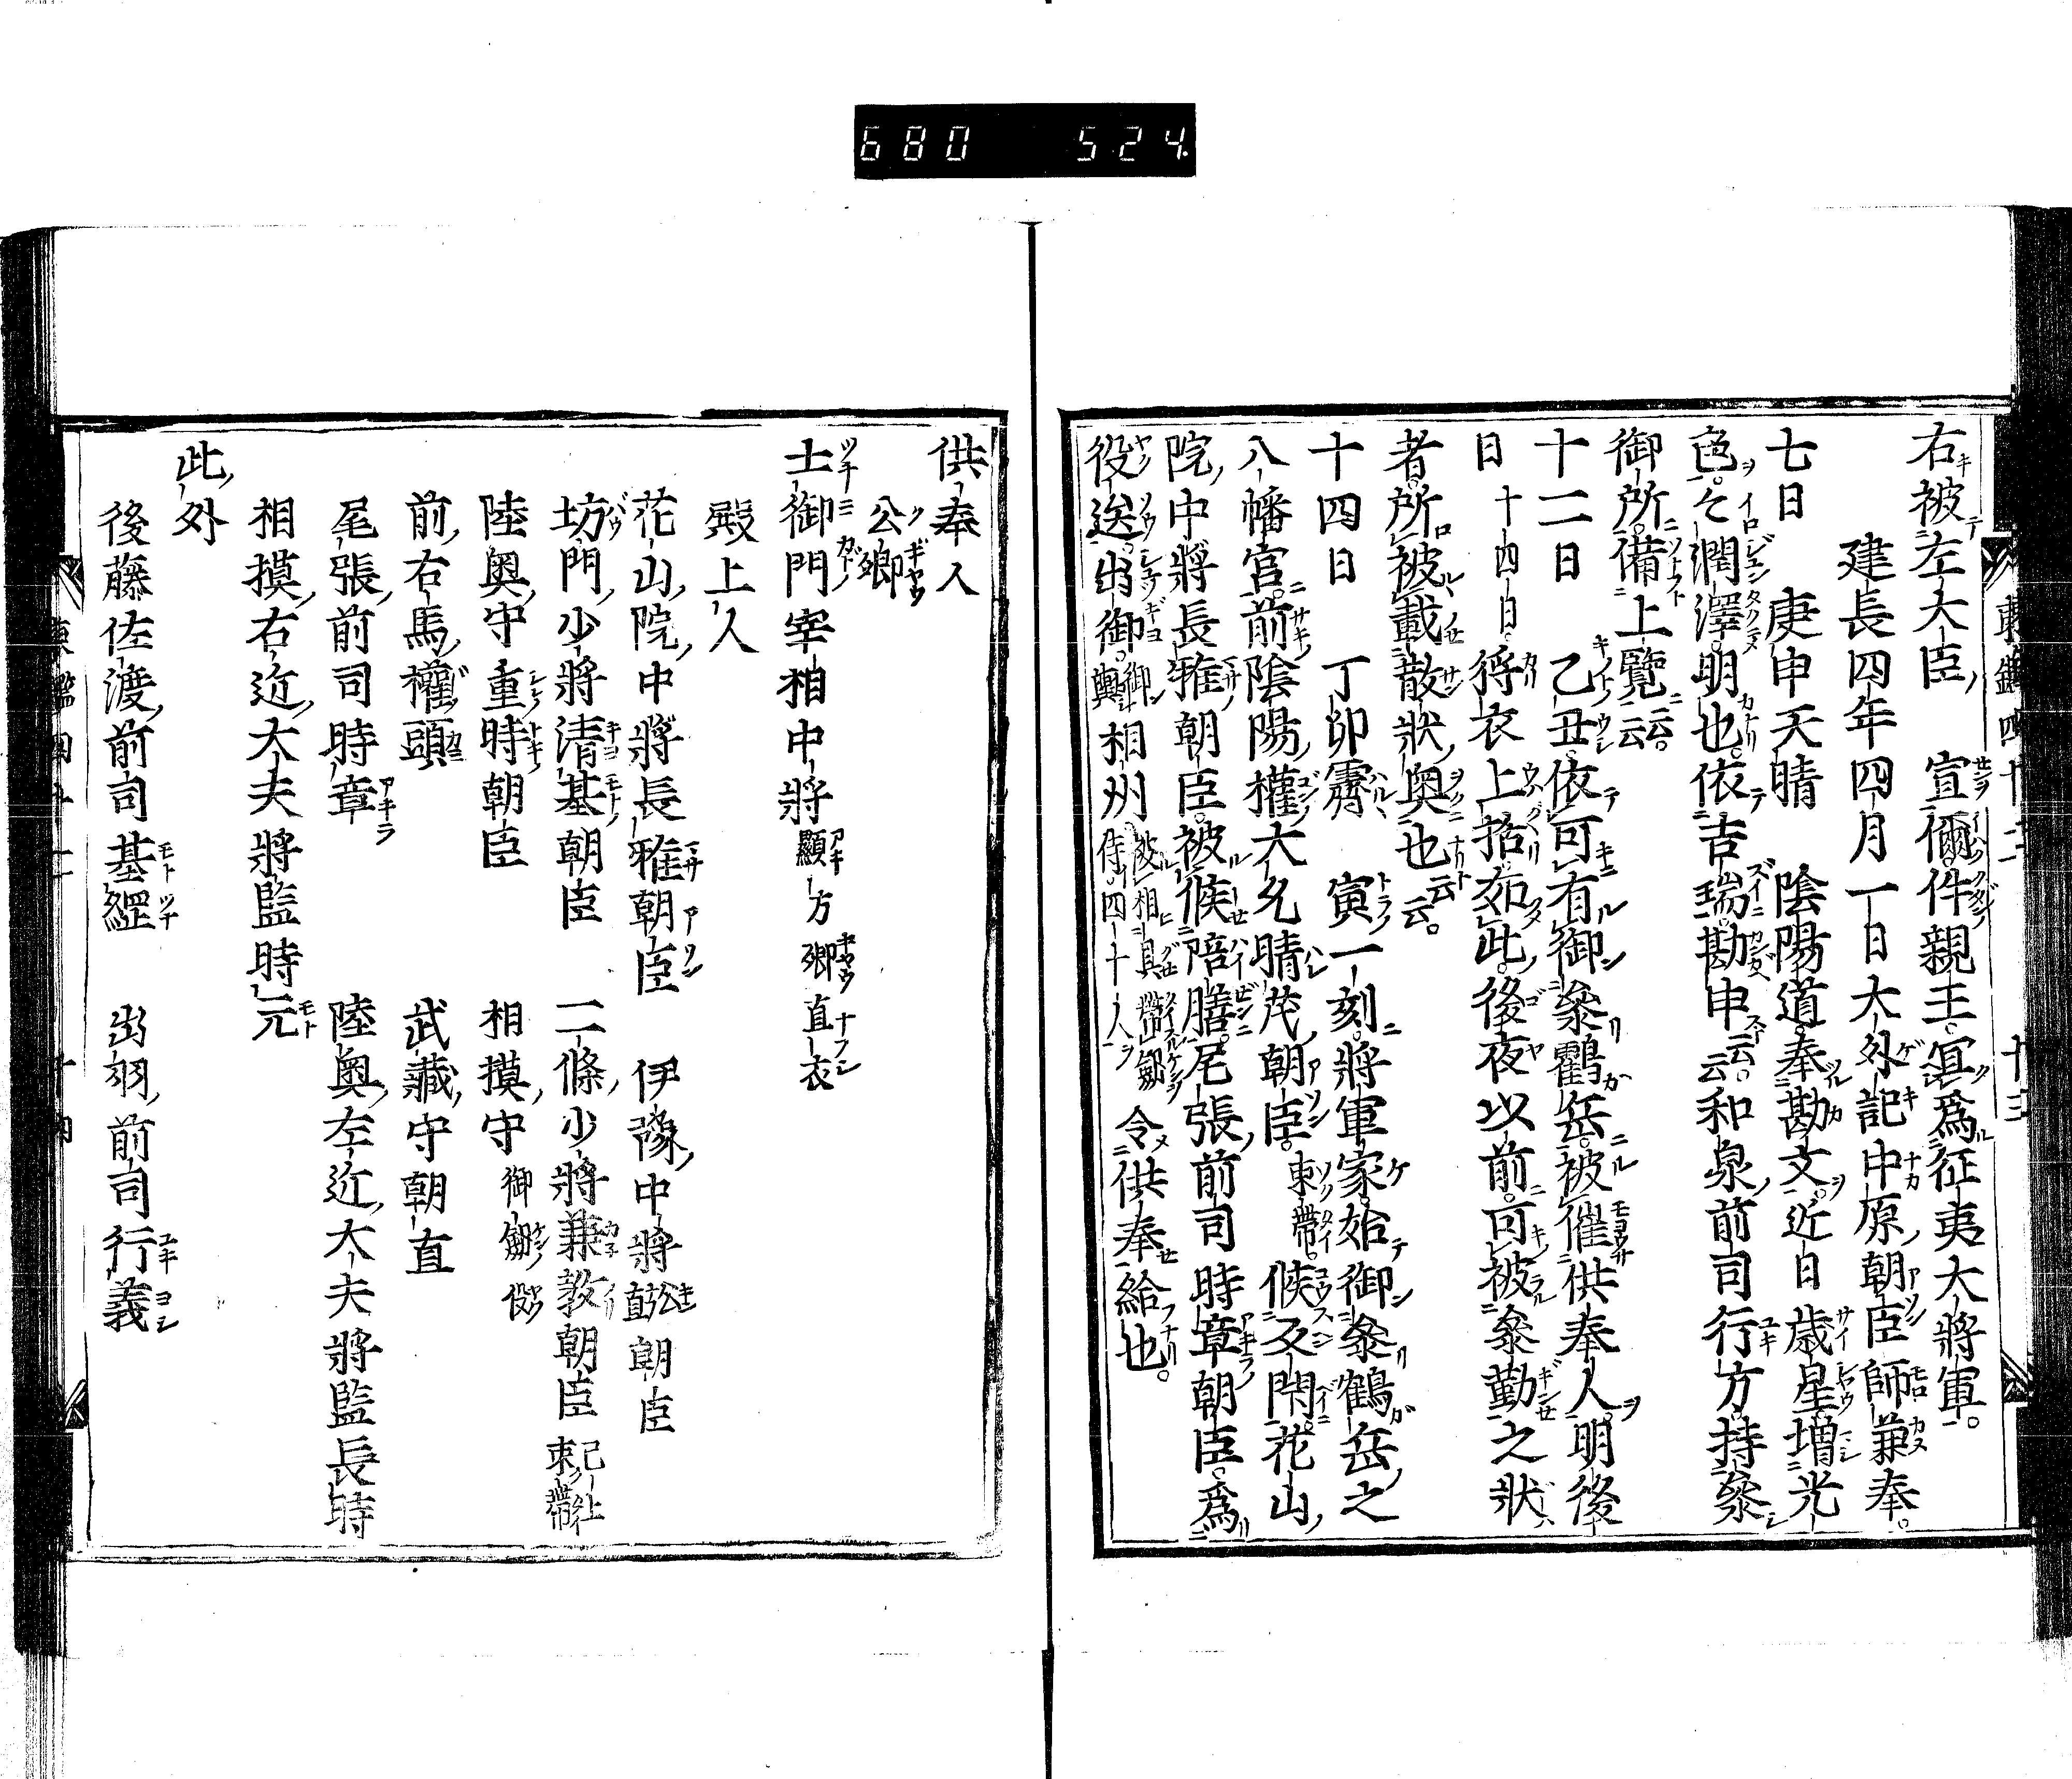 680 524.
右被左大臣宣偁。件親王。冝爲征夷大將軍。
建長四年四月一日大外記中原朝臣師兼奉。
七日 庚申天晴 陰陽道。奉勘文。近日歲星。增光
色。々潤澤。明也。依吉瑞。勘申云云。和泉前司行方。持參
御所。備上覽云云。
十二日 乙丑。依可有御參鶴岳。被催供奉人。明後
日十四日。將衣上括如此。後夜以前。可被參勤之狀
者。所被載散狀奧也云云。
十四日 丁卯霽 寅一刻。將軍家。始御參鶴岳之
八幡宮。前陰陽權大允晴茂朝臣。束帶。候反閇。花山
院中將長雅朝臣。被候陪膳。尾張前司時章朝臣。爲
役送。出御。御輿相州被相具帶劔侍。四十人令供奉給也。
供奉人
公卿
土御門宰相中將顯方卿直衣
殿上人
花山院中將長雅朝臣 伊豫中將公直朝臣
坊門少將清基朝臣 二條少將兼教朝臣已上束帶
陸奧守重時朝臣 相摸守御劔役
前右馬權頭 武藏守朝直
尾張前司時章 陸奧左近大夫將監長時
相摸右近大夫將監時元
此外
後藤佐渡前司基綱 出羽前司行義